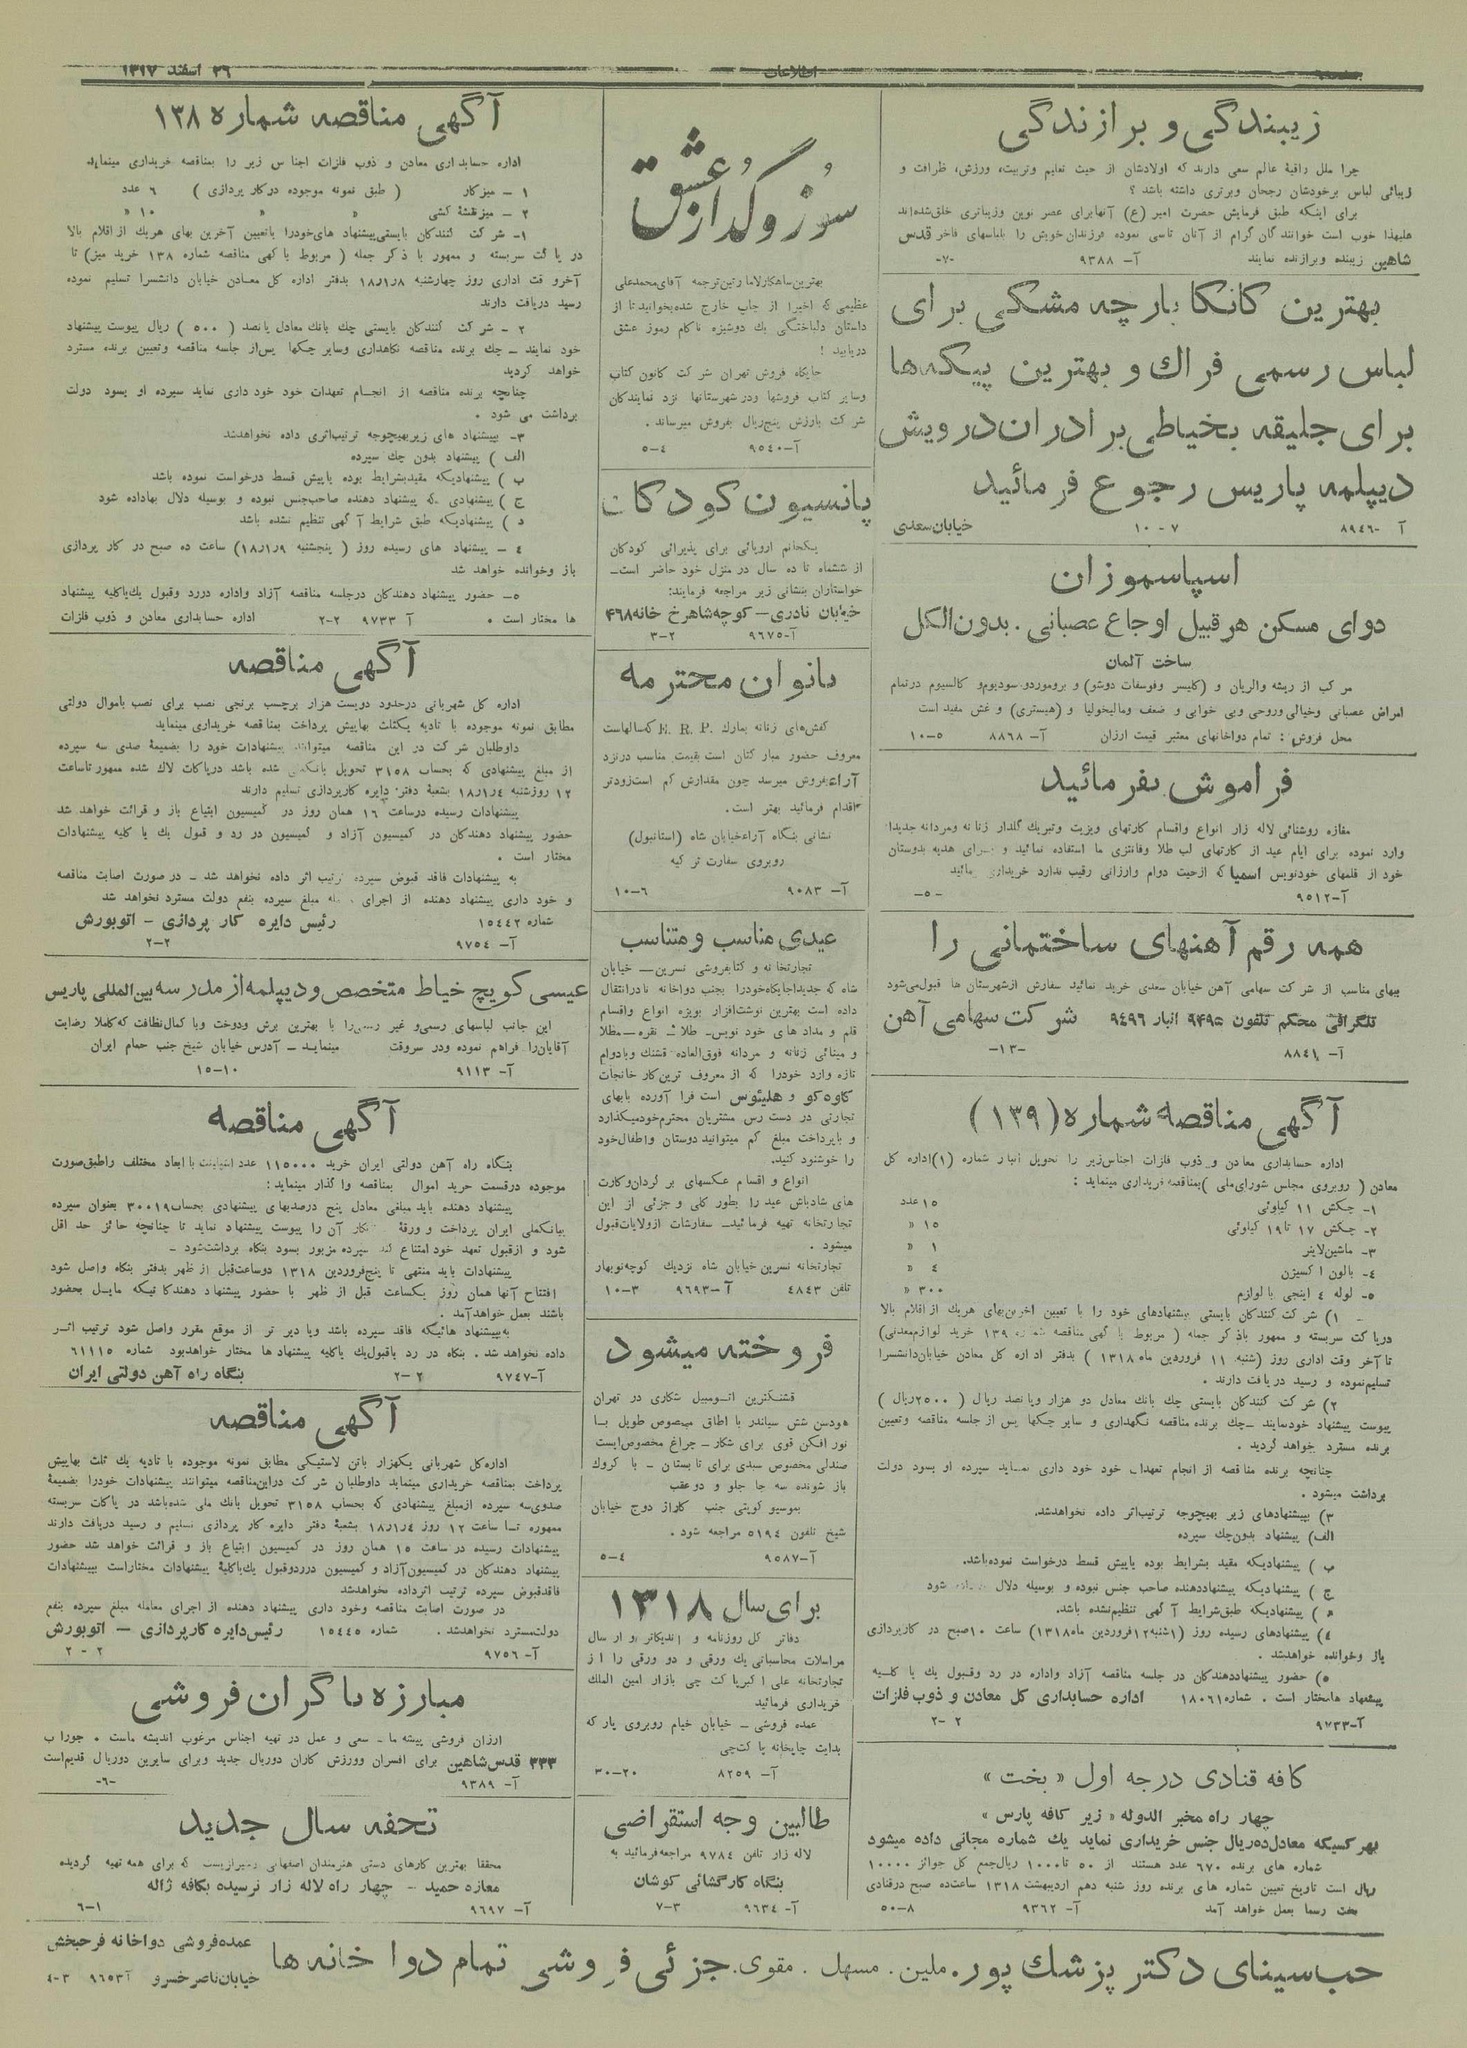 اطلاعات
۲۶ اسفند ۱۳۱۷
زیبندگی و برازندگی
چرا ملل راقیهٔ عالم سعی دارند که اولادشان از حیث تعلیم وتربیت، ورزش، ظرافت و
زیبائی لباس برخودشان رجحان وبرتری داشته باشد ؟
برای اینکه طبق فرمایش حضرت امیر (ع) آنها برای عصر نوین وزیباتری خلق شده‌اند
علیهذا خوب است خوانندگان گرام از آنان تاسی نموده فرزندان خویش را بلباسهای فاخر قدس
شاهین زیبنده وبرازنده نمایند آ- ۹۳۸۸ -۷-
بهترین کانکا پارچه مشکی برای
لباس رسمی فراك و بهترین پیکه‌ها
برای جلیقه بخیاطی برادران درویش
دیپلمه پاریس رجوع فرمائید
آ -۸۹۴۶ ۷ - ۱۰ خیابان سعدی
اسپاسموزان
دوای مسکن هر قبیل اوجاع عصبانی . بدون الکل
ساخت آلمان
مرکب از ریشه والریان و (کلیسر وفوسفات دوشو) و برومور دو سودیوم و کالسیوم در تمام
امراض عصبانی وخیالی وروحی وبی خوابی و ضعف ومالیخولیا و (هیستری) و غش مفید است
محل فروش : تمام دواخانهای معتبر قیمت ارزان آ- ۸۸۶۸ ۵-۱۰
فراموش نفرمائید
مغازه روشنائی لاله زار انواع واقسام کارتهای ویزیت وتبریك گلدار زنانه ومردانه جدیدا
وارد نموده برای ایام عید از کارتهای لب طلا وفانتزی ما استفاده نمائید و برای هدیه بدوستان
خود از قلمهای خودنویس اسمیا که ازحیث دوام وارزانی رقیب ندارد خریداری نمائید
آ-۹۵۱۲ -۵-
همه رقم آهنهای ساختمانی را
ببهای مناسب از شرکت سهامی آهن خیابان سعدی خرید نمائید سفارش ازشهرستان ها قبول میشود
تلگرافی محکم تلفون ۹۴۹۵ انبار ۹۴۹۶ شرکت سهامی آهن
آ- ۸۸۴۱ -۱۳-
آگهی مناقصه شماره (۱۳۹)
اداره حسابداری معادن و ذوب فلزات اجناس زیر را تحویل انبار شماره (۱) اداره کل
معادن ( روبروی مجلس شورای ملی ) بمناقصه خریداری مینماید :
۱- چکش ۱۱ کیلوئی ۱۵ عدد
۲- چکش ۱۷ تا ۱۹ کیلوئی ۱۵ «
۳- ماشین لاینر ۱ «
۴- بالون اکسیژن ۴ «
۵- لوله ۴ اینجی با لوازم ۳۰۰ «
۱) شرکت کنندگان بایستی پیشنهادهای خود را با تعیین آخرین بهای هریك از اقلام بالا
در پاکت سربسته و ممهور باذکر جمله ( مربوط بآگهی مناقصه شماره ۱۳۹ خرید لوازم معدنی)
تا آخر وقت اداری روز (شنبه ۱۱ فروردین ماه ۱۳۱۸ ) بدفتر اداره کل معادن خیابان دانشسرا
تسلیم نموده و رسید دریافت دارند .
۲) شرکت کنندگان بایستی چك بانك معادل دو هزار و پانصد ریال ( ۲۵۰۰ ریال )
پیوست پیشنهاد خود نمایند - چك برنده مناقصه نگهداری و سایر چکها پس از جلسه مناقصه وتعیین
برنده مسترد خواهد گردید .
چنانچه برنده مناقصه از انجام تعهدات خود خود داری نماید سپرده او بسود دولت
برداشت میشود .
۳) بپیشنهادهای زیر بهیچوجه ترتیب اثر داده نخواهد شد.
الف) پیشنهاد بدون چك سپرده
ب ) پیشنهادیکه مقید بشرایط بوده یا پیش قسط درخواست نموده باشد.
ج ) پیشنهادیکه پیشنهاد دهنده صاحب جنس نبوده و بوسیله دلال شود
د ) پیشنهادیکه طبق شرایط آگهی تنظیم نشده باشد.
۴) پیشنهادهای رسیده روز (۱شنبه ۱۲ فروردین ماه ۱۳۱۸) ساعت ۱۰ صبح در کارپردازی
باز وخوانده خواهد شد .
۵) حضور پیشنهاد دهندکان در جلسه مناقصه آزاد واداره در رد وقبول یك یا کلیه
پیشنهاد ها مختار است . شماره ۱۸۰۶۱ اداره حسابداری کل معادن و ذوب فلزات
آ-۹۷۳۳ ۲ -۲
کافه قنادی درجه اول « بخت »
چهار راه مخبر الدوله « زیر کافه پارس »
بهر کسیکه معادل ده ریال جنس خریداری نماید یك شماره مجانی داده میشود
شماره های برنده ۶۷۰ عدد هستند از ۵۰ تا ۱۰۰۰ ریال جمع کل جوائز ۱۰۰۰۰
ریال است تاریخ تعیین شماره های برنده روز شنبه دهم اردیبهشت ۱۳۱۸ ساعت ده صبح در قنادی
بخت رسما بعمل خواهد آمد آ- ۹۳۶۲ ۸-۵۰
سوز و گداز عشق
بهترین شاهکار لامارتین ترجمه آقای محمدعلی
عظیمی که اخیرا از چاپ خارج شده بخوانید تا از
داستان دلباختگی یك دوشیزه ناکام رموز عشق
دریابید !
جایگاه فروش تهران شرکت کانون کتاب
وسایر کتاب فروشها ودر شهرستانها نزد نمایندگان
شرکت بارزش پنج ریال بفروش میرساند .
آ-۹۵۴۰ ۴-۵
پانسیون کودکان
یکخانم اروپائی برای پذیرائی کودکان
از ششماه تا ده سال در منزل خود حاضر است-
خواستاران بنشانی زیر مراجعه فرمایند:
خیابان نادری - کوچه شاهرخ خانه ۴۶۸
آ-۹۶۷۵ ۲-۳
بانوان محترمه
کفش‌های زنانه بمارك E. R. P. که سالهاست
معروف حضور مبارکتان است بقیمت مناسب در نزد
آراء بفروش میرسد چون مقدارش کم است زودتر
اقدام فرمائید بهتر است .
نشانی بنگاه آراء خیابان شاه (استانبول)
روبروی سفارت ترکیه
آ- ۹۰۸۳ ۶-۱۰
عیدی مناسب و متناسب
تجارتخانه و کتابفروشی نسرین- خیابان
شاه که جدیدا جایگاه خود را بجنب دواخانه نادر انتقال
داده است بهترین نوشت افزار بویژه انواع واقسام
قلم و مداد های خود نویس- طلا- نقره - مطلا
و مینائی زنانه و مردانه فوق العاده قشنك وبادوام
تازه وارد خودرا که از معروف ترین کارخانجات
کاوه کو و هلیئوس است فرا آورده ببهای
تجارتی در دست رس مشتریان محترم خود میگذارد
و با پرداخت مبلغ کم میتوانید دوستان واطفال خود
را خوشنود کنید.
انواع و اقسام عکسهای برگردان وکارت
های شادباش عید را بطور کلی و جزئی از این
تجارتخانه تهیه فرمائید- سفارشات از ولایات قبول
میشود .
تجارتخانه نسرین خیابان شاه نزدیك کوچه نوبهار
تلفن ۴۸۴۳ آ-۹۶۹۳ ۳-۱۰
فروخته میشود
قشنگترین اتومبیل شکاری در تهران
هودسن شش سیلندر با اطاق مخصوص طویل با
نور افکن قوی برای شکار - چراغ مخصوص ایست
صندلی مخصوص سبدی برای تابستان - با کروك
باز شونده سه جا جلو و دو عقب
بموسیو کویتی جنب کاراژ دوج خیابان
شیخ تلفون ۵۱۹۴ مراجعه شود .
آ-۹۵۸۷ ۴-۵
برای سال ۱۳۱۸
دفاتر کل روزنامه و اندیکاتر و ارسال
مراسلات محاسباتی یك ورقی و دو ورقی را از
تجارتخانه علی اکبر پاکت چی بازار امین الملك
خریداری فرمائید
عمده فروشی - خیابان خیام روبروی پارکه
بدایت چاپخانه پاکت چی
آ- ۸۲۵۹ ۲۰-۳۰
طالبین وجه استقراضی
لاله زار تلفن ۹۷۸۴ مراجعه فرمائید به
بنگاه کارگشائی کوشان
آ- ۹۶۳۴ ۳-۷
آگهی مناقصه شماره ۱۳۸
اداره حسابداری معادن و ذوب فلزات اجناس زیر را بمناقصه خریداری مینماید
۱ - میز کار ( طبق نمونه موجوده در کار پردازی ) ۶ عدد
۲ - میز نقشه کشی « « ۱۰ «
۱- شرکت کنندکان بایستی پیشنهاد های خودرا باتعیین آخرین بهای هریك از اقلام بالا
در پاکت سربسته و ممهور با ذکر جمله ( مربوط بآگهی مناقصه شماره ۱۳۸ خرید میز) تا
آخر وقت اداری روز چهارشنبه ۱۸/۱/۸ بدفتر اداره کل معادن خیابان دانشسرا تسلیم نموده
رسید دریافت دارند
۲ - شرکت کنندکان بایستی چك بانك معادل پانصد ( ۵۰۰ ) ریال پیوست پیشنهاد
خود نمایند - چك برنده مناقصه نگاهداری وسایر چکها پس از جلسه مناقصه وتعیین برنده مسترد
خواهد گردید
چنانچه برنده مناقصه از انجام تعهدات خود خود داری نماید سپرده او بسود دولت
برداشت می شود .
۳- بپیشنهاد های زیر بهیچوجه ترتیب اثری داده نخواهد شد
الف ) پیشنهاد بدون چك سپرده
ب ) پیشنهادیکه مقید بشرایط بوده یا پیش قسط درخواست نموده باشد
ج ) پیشنهادی که پیشنهاد دهنده صاحب جنس نبوده و بوسیله دلال بهاداده شود
د ) پیشنهادیکه طبق شرایط آگهی تنظیم نشده باشد
۴ - پیشنهاد های رسیده روز ( پنجشنبه ۱۸/۱/۹) ساعت ده صبح در کار پردازی
باز وخوانده خواهد شد
۵- حضور پیشنهاد دهندکان در جلسه مناقصه آزاد واداره در رد وقبول یك یا کلیه پیشنهاد
ها مختار است . آ ۹۷۳۳ ۲-۲ اداره حسابداری معادن و ذوب فلزات
آگهی مناقصه
اداره کل شهربانی در حدود دویست هزار برچسب برنجی نصب برای نصب باموال دولتی
مطابق نمونه موجوده با تادیه یکثلث بهاپیش پرداخت بمناقصه خریداری مینماید
داوطلبان شرکت در این مناقصه میتوانند پیشنهادات خود را بضمیمهٔ صدی سه سپرده
از مبلغ پیشنهادی که بحساب ۳۱۵۸ تحویل بانک ملی شده باشد در پاکات لاك شده ممهور تاساعت
۱۲ روز شنبه ۱۸/۱/۴ بشعبهٔ دفتر دایره کارپردازی تسلیم دارند
پیشنهادات رسیده در ساعت ۱۶ همان روز در کمیسیون ابتیاع باز و قرائت خواهد شد
حضور پیشنهاد دهندکان در کمیسیون آزاد و کمیسیون در رد و قبول یك یا کلیه پیشنهادات
مختار است .
به پیشنهادات فاقد قبوض سپرده ترتیب اثر داده نخواهد شد - در صورت اصابت مناقصه
و خود داری پیشنهاد دهنده از اجرای معامله مبلغ سپرده بنفع دولت مسترد نخواهد شد
شماره ۱۵۴۴۲ رئیس دایره کار پردازی - اتوبورش
آ- ۹۷۵۴ ۲-۲
عیسی کویچ خیاط متخصص و دیپلمه از مدرسه بین‌المللی پاریس
این جانب لباسهای رسمی و غیر رسمی را با بهترین برش ودوخت وبا کمال نظافت که کاملا رضایت
آقایان را فراهم نموده ودر سروقت مینماید - آدرس خیابان شیخ جنب حمام ایران
آ- ۹۱۱۳ ۱۰-۱۵
آگهی مناقصه
بنگاه راه آهن دولتی ایران خرید ۱۱۵۰۰۰ عدد اشپایشت با ابعاد مختلف را طبق صورت
موجوده در قسمت خرید اموال بمناقصه واگذار مینماید :
پیشنهاد دهنده باید مبلغی معادل پنج درصد بهای پیشنهادی بحساب ۳۰۰۱۹ بعنوان سپرده
ببانك ملی ایران پرداخت و ورقهٔ آن را پیوست پیشنهاد نماید تا چنانچه حائز حد اقل
شود و از قبول تعهد خود امتناع کند سپرده مزبور بسود بنگاه برداشت شود -
پیشنهادات باید منتهی تا پنج فروردین ۱۳۱۸ دو ساعت قبل از ظهر بدفتر بنگاه واصل شود
افتتاح آنها همان روز یکساعت قبل از ظهر با حضور پیشنهاد دهندکانیکه مایل بحضور
باشند بعمل خواهد آمد .
به پیشنهاد هائیکه فاقد سپرده باشد ویا دیر تر از موقع مقرر واصل شود ترتیب اثر
داده نخواهد شد . بنگاه در رد یاقبول یك یاکلیه پیشنهاد ها مختار خواهد بود شماره ۶۱۱۱۵
آ-۹۷۴۷ ۲ -۲ بنگاه راه آهن دولتی ایران
آگهی مناقصه
اداره کل شهربانی یکهزار باتن لاستیکی مطابق نمونه موجوده با تادیه یك ثلث بهاپیش
پرداخت بمناقصه خریداری مینماید داوطلبان شرکت دراین مناقصه میتوانند پیشنهادات خودرا بضمیمهٔ
صدوی سه سپرده ازمبلغ پیشنهادی که بحساب ۳۱۵۸ تحویل بانك ملی شده باشد در پاکات سربسته
ممهوره تا ساعت ۱۲ روز ۱۸/۱/۴ بشعبهٔ دفتر دایره کار پردازی تسلیم و رسید دریافت دارند
پیشنهادات رسیده در ساعت ۱۵ همان روز در کمیسیون ابتیاع باز و قرائت خواهد شد حضور
پیشنهاد دهندکان در کمیسیون آزاد و کمیسیون در رد وقبول یك یا کلیهٔ پیشنهادات مختار است بپیشنهادات
فاقد قبوض سپرده ترتیب اثر داده نخواهد شد
در صورت اصابت مناقصه وخود داری پیشنهاد دهنده از اجرای معامله مبلغ سپرده بنفع
دولت مسترد نخواهد شد . شماره ۱۵۴۴۵ رئیس دایره کارپردازی - اتوبورش
آ- ۹۷۵۶ ۲ - ۲
مبارزه با گران فروشی
ارزان فروشی پیشه ما - سعی و عمل در تهیه اجناس مرغوب اندیشه ماست . جوراب
۳۳۳ قدس شاهین برای افسران وورزش کاران دوریال جدید وبرای سایرین دوریال قدیم است
آ- ۹۳۸۹ -۶-
تحفه سال جدید
محققا بهترین کارهای دستی هنرمندان اصفهانی که برای همه تهیه گردیده
مغازه حمید - چهار راه لاله زار نرسیده بکافه ژاله
آ- ۹۶۹۷ ۱-۶
حب سینای دکتر پزشك پور. ملین. مسهل. مقوی. جزئی فروشی تمام دوا خانه ها
عمده فروشی دواخانه فرحبخش
خیابان ناصر خسرو آ ۹۶۵۳ ۳-۴